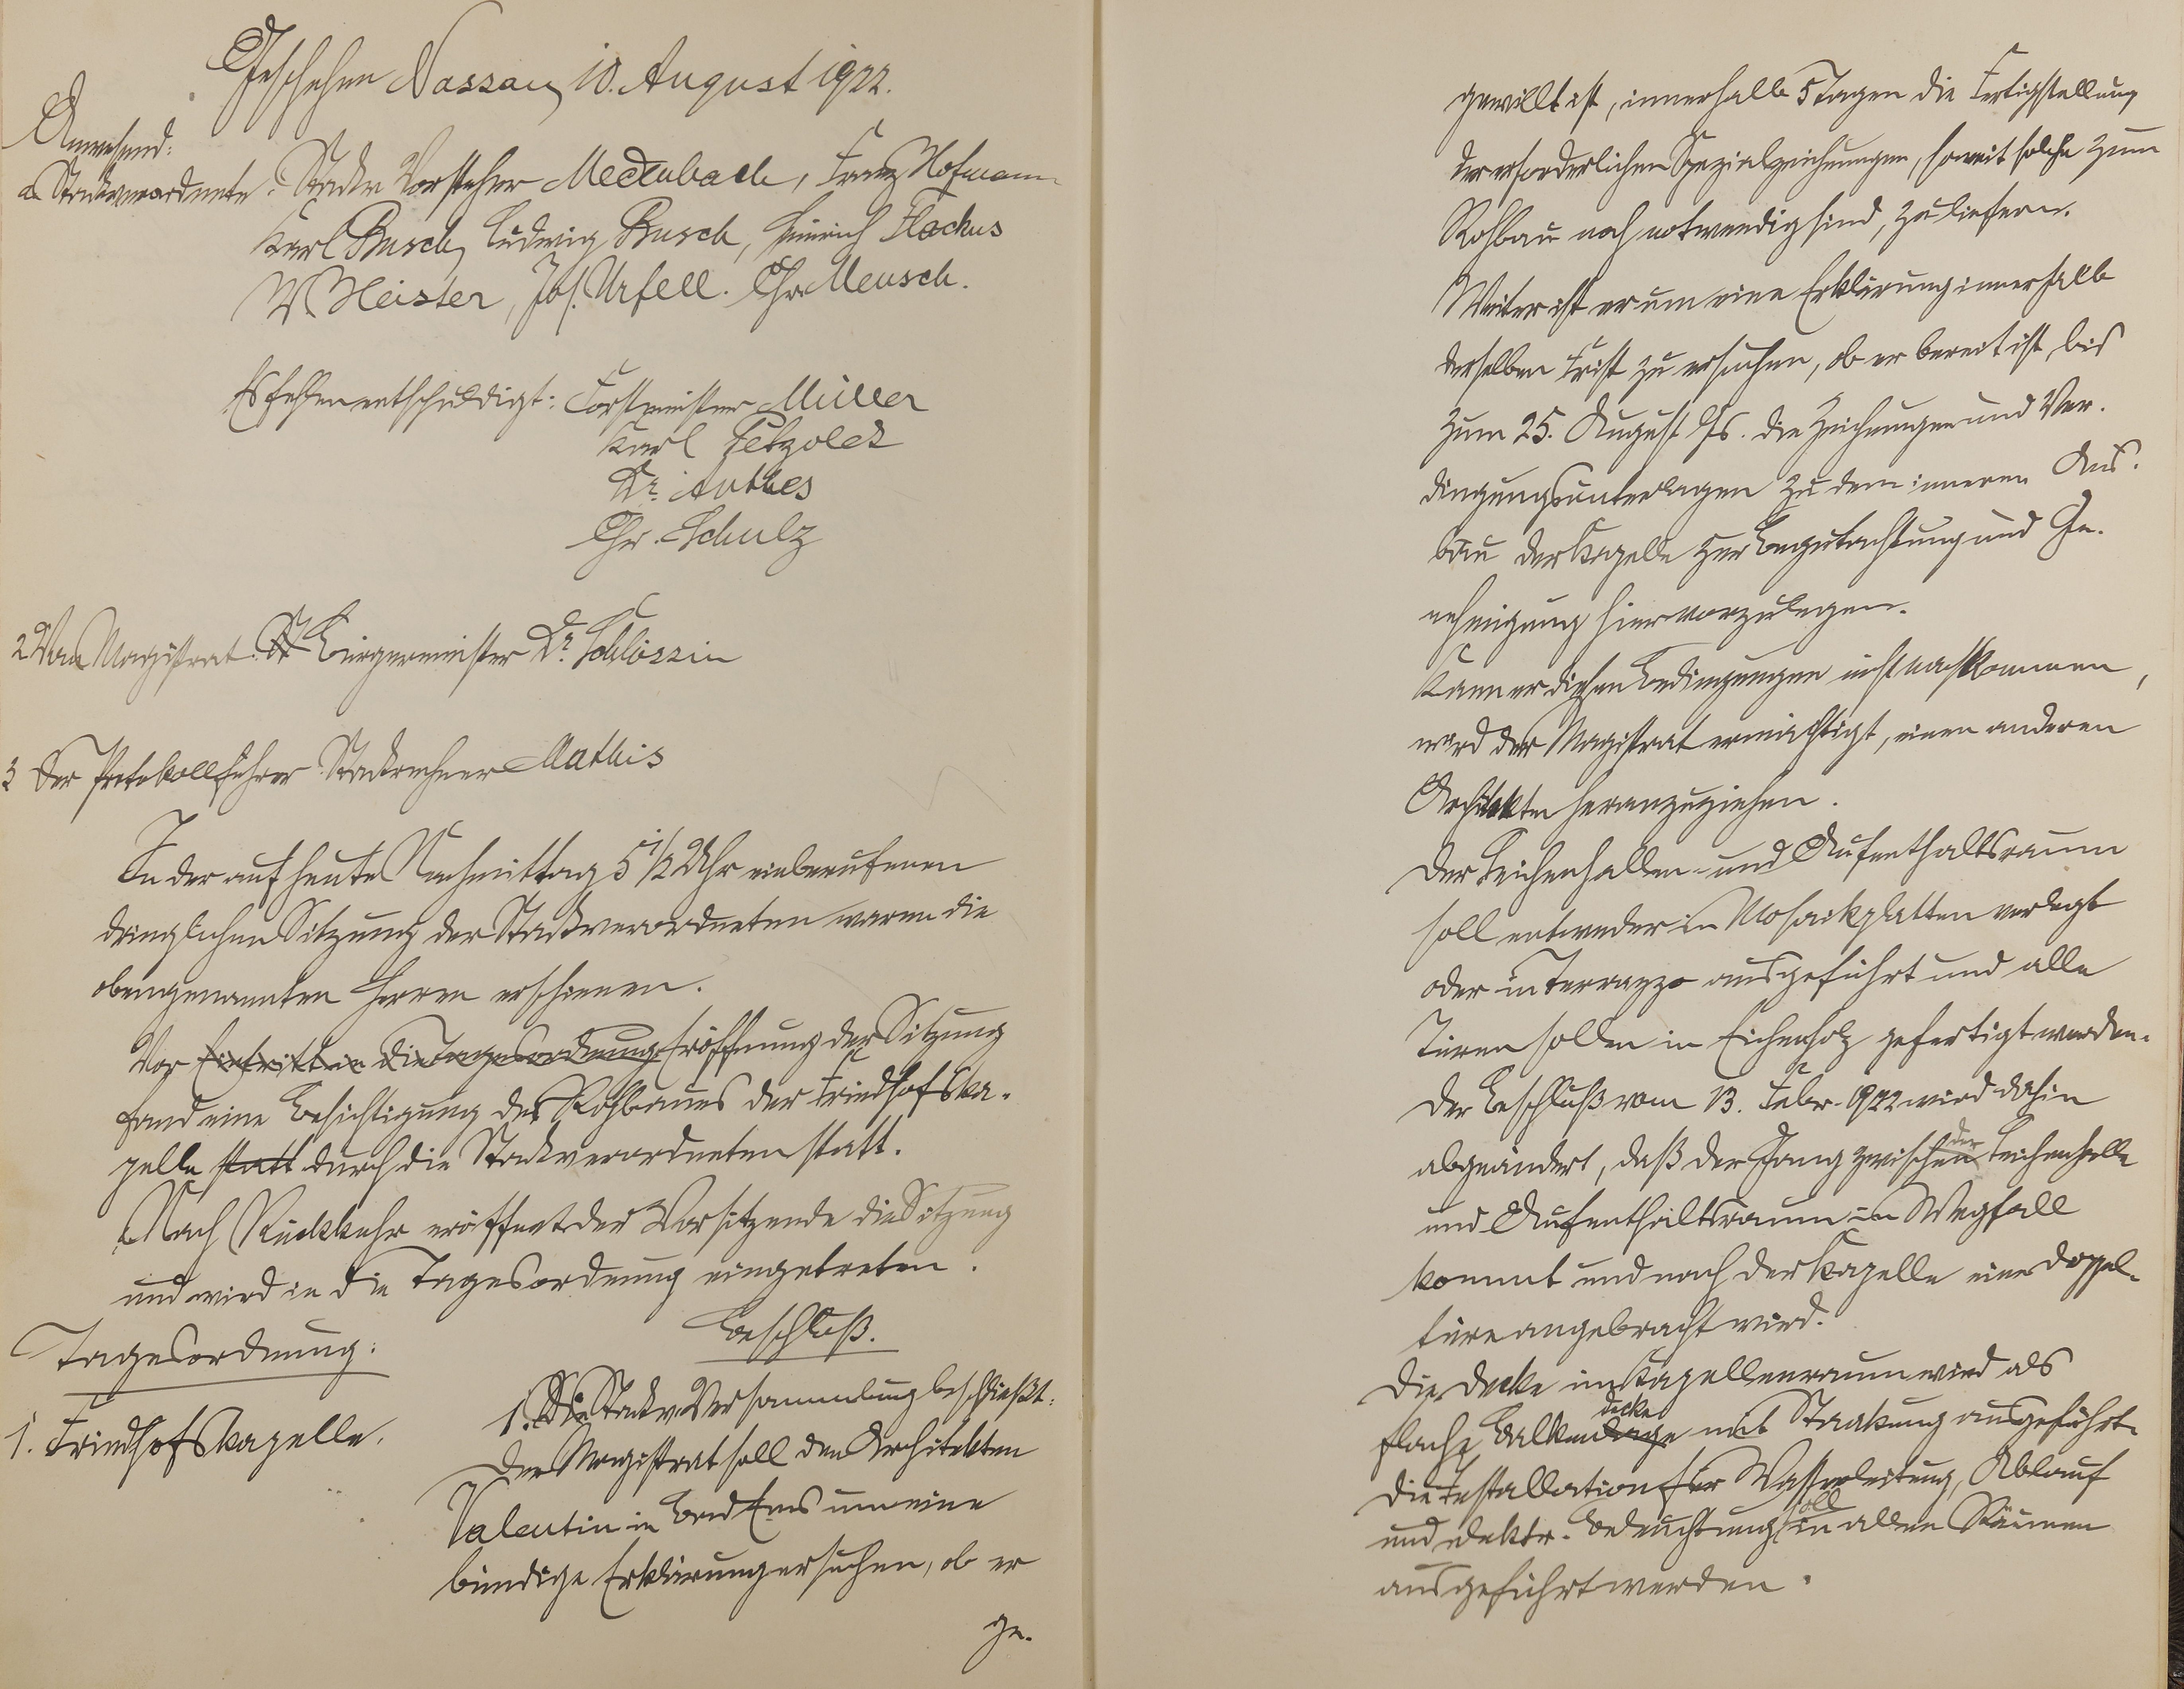 Geschehen Nassau, 10. August 1922.
Anwesend:
a Stadtverordnete: Stadtv. Vorsteher Medenbach, Franz Hofmann
Karl Busch, Ludwig Busch, Heinrich Flackus
W. Heister, Jos. Urfell. Chr. Mensch.
Es fehlen entschuldigt: Forstmeister Müller
Karl Petzoldt
Dr. Anthes
Chr. Schulz
2 Vom Magistrat: Bürgermeister Dr. Schlössin
3 Der Protokollführer Stadtrechner Mathis
In der auf heute Nachmittag 5 1/2 Uhr einberufenen
dringlichen Sitzung der Stadtverordneten waren die
obengenannten Herren erschienen.
Vor Eintritt in die Tagesordnung Eröffnung der Sitzung
fand eine Besichtigung des Rohbaues der Friedhofska-
pelle statt durch die Stadtverordneten statt.
Nach Rückkehr eröffnet der Vorsitzende die Sitzung
und wird in die Tagesordnung eingetreten.
Tagesordnung:
Beschluß.
1. Friedhofskapelle.
1. Die Stadtv. Versammlung beschließt:
Der Magistrat soll den Architekten
Valentin in Bad Ems um eine
bündige Erklärung ersuchen, ob er
ge-
gewillt ist, innerhalb 5 Tagen die Fertigstellung
der erforderlichen Spezialzeichnungen, soweit solche zum
Rohbau noch notwendig sind, zu liefern.
Weiter ist er um eine Erklärung innerhalb
derselben Frist zu ersuchen, ob er bereit ist, bis
zum 25. August ds. Js. die Zeichnungen und Ver-
dingungsunterlagen zu dem inneren Aus-
bau der Kapelle zur Begutachtung und Ge-
nehmigung hier vorzulegen.
Kann er diesen Bedingungen nicht nachkommen,
wird der Magistrat ermächtigt, einen anderen
Architekten heranzuziehen.
Der Leichenhallen- und Aufenthaltsraum
soll entweder in Mosaikplatten verlegt
oder in Terrazzo ausgeführt und alle
Türen sollen in Eichenholz gefertigt werden.
Der Beschluß vom 13. Febr. 1922 wird dahin
abgeändert, daß der Gang zwischen der Leichenhalle
und Aufenthaltsraum in Wegfall
kommt und nach der Kapelle eine Doppel-
türe angebracht wird.
Die Decke im Kapellenraum wird als
flache Balkenlage decke mit Stakung ausgeführt.
Die Installation für Wasserleitung, Ablauf
und elektr. Beleuchtung soll in allen Räumen
ausgeführt werden.